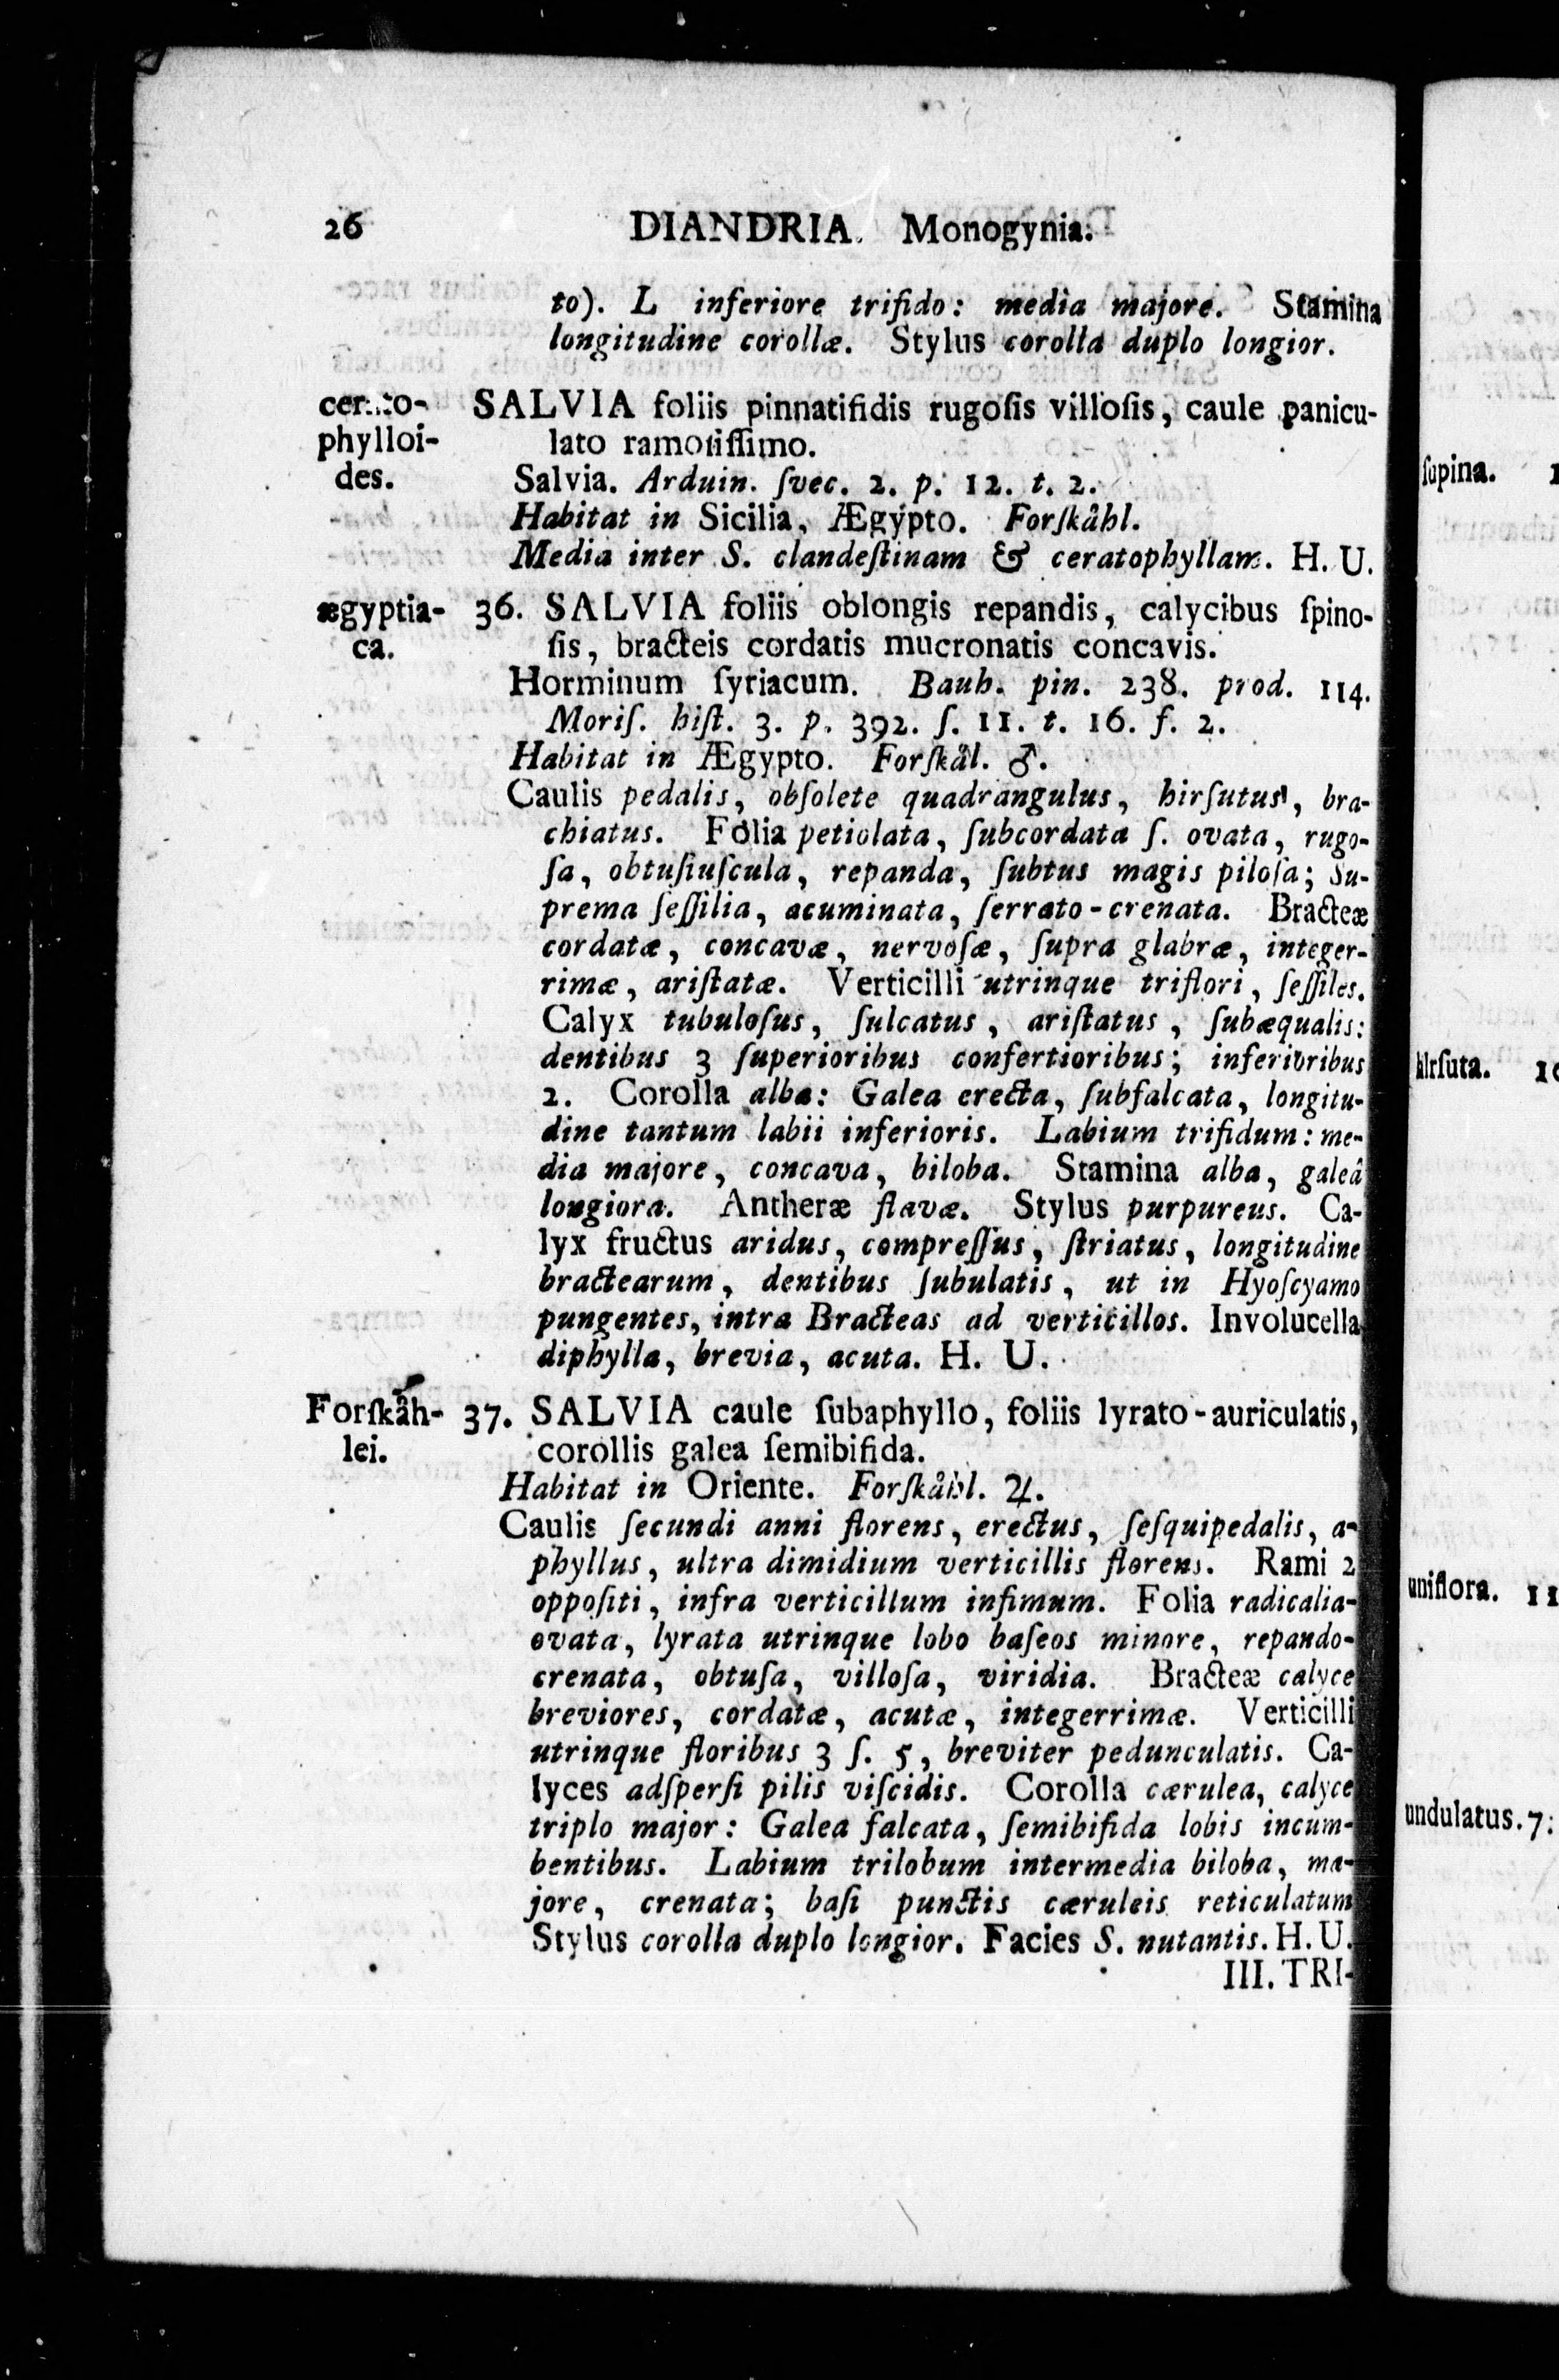 26 DIANDRIA. Monogynia.
to). L inferiore trifido: media majore. Stamina
longitudine corollæ. Stylus corolla duplo longior.
cerato- SALVIA foliis pinnatifidis rugoſis villoſis, caule panicu-
phylloi- lato ramoſiſſimo.
des. Salvia. Arduin. ſvec. 2. p. 12. t. 2.
Habitat in Sicilia, Ægypto. Forſkåhl.
Media inter S. clandeſtinam & ceratophyllam. H. U.
ægyptia- 36. SALVIA foliis oblongis repandis, calycibus ſpino-
ca. ſis, bracteis cordatis mucronatis concavis.
Horminum ſyriacum. Bauh. pin. 238. prod. 114.
Moriſ. hiſt. 3. p. 392. ſ. 11. t. 16. f. 2.
Habitat in Ægypto. Forſkål. ♂.
Caulis pedalis, obſolete quadrangulus, hirſutus, bra-
chiatus. Folia petiolata, ſubcordata ſ. ovata, rugo-
ſa, obtuſiuſcula, repanda, ſubtus magis piloſa; Su-
prema ſeſſilia, acuminata, ſerrato-crenata. Bracteæ
cordatæ, concavæ, nervoſæ, ſupra glabræ, integer-
rimæ, ariſtatæ. Verticilli utrinque triflori, ſeſſiles.
Calyx tubuloſus, ſulcatus, ariſtatus, ſubæqualis:
dentibus 3 ſuperioribus confertioribus; inferioribus
2. Corolla alba: Galea erecta, ſubfalcata, longitu-
dine tantum labii inferioris. Labium trifidum: me-
dia majore, concava, biloba. Stamina alba, galeâ
longiora. Antheræ flavæ. Stylus purpureus. Ca-
lyx fructus aridus, compreſſus, ſtriatus, longitudine
bractearum, dentibus ſubulatis, ut in Hyoſcyamo
pungentes, intra Bracteas ad verticillos. Involucella
diphylla, brevia, acuta. H. U.
Forſkåh- 37. SALVIA caule ſubaphyllo, foliis lyrato-auriculatis,
lei. corollis galea ſemibifida.
Habitat in Oriente. Forſkåhl. ♃.
Caulis ſecundi anni florens, erectus, ſeſquipedalis, a-
phyllus, ultra dimidium verticillis florens. Rami 2
oppoſiti, infra verticillum infimum. Folia radicalia-
ovata, lyrata utrinque lobo baſeos minore, repando-
crenata, obtuſa, villoſa, viridia. Bracteæ calyce
breviores, cordatæ, acutæ, integerrimæ. Verticilli
utrinque floribus 3 ſ. 5, breviter pedunculatis. Ca-
lyces adſperſi pilis viſcidis. Corolla cærulea, calyce
triplo major: Galea falcata, ſemibifida lobis incum-
bentibus. Labium trilobum intermedia biloba, ma-
jore, crenata; baſi punctis cæruleis reticulatum
Stylus corolla duplo longior. Facies S. nutantis. H. U.
III. TRI-
ſupina.
hirſuta.
uniflora. 11
undulatus. 7: